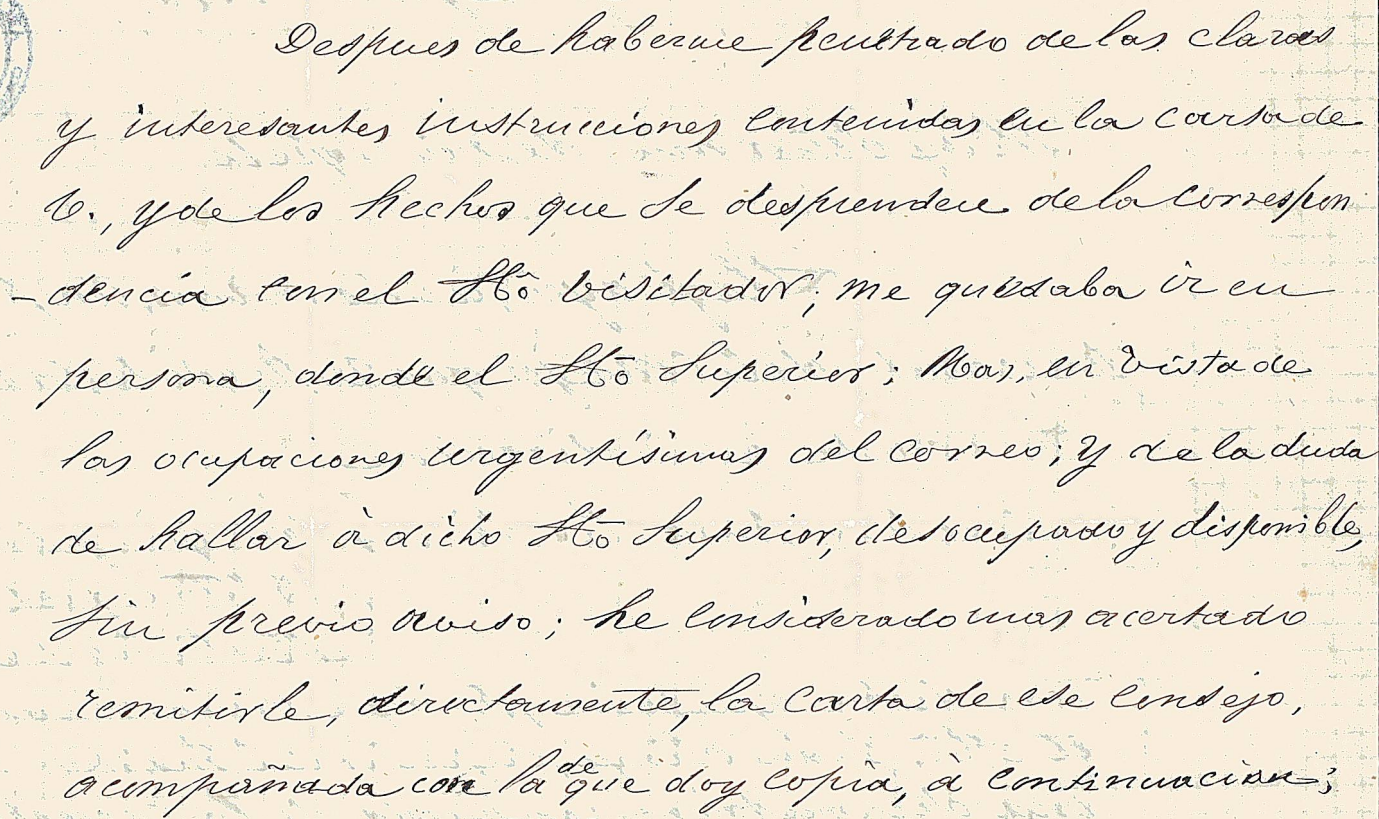 Despues de haberme penetrado de las claras
y interesantes instrucciones contenidas en la carta de
V., y de los hechos que se desprenden de la correspon
-dencia con el Hō visitador; me quedaba ir en
persona, donde el Hō Superior; Mas, en vista de
las ocupaciones urgentísimas del correo; y de la duda
de hallar à dicho Hō Superior, desocupado y disponible,
sin previo aviso; he considerado mas acertado
remitirle, directamente, la carta de ese Consejo,
acompañada con la de que doy copia, à continuacion;